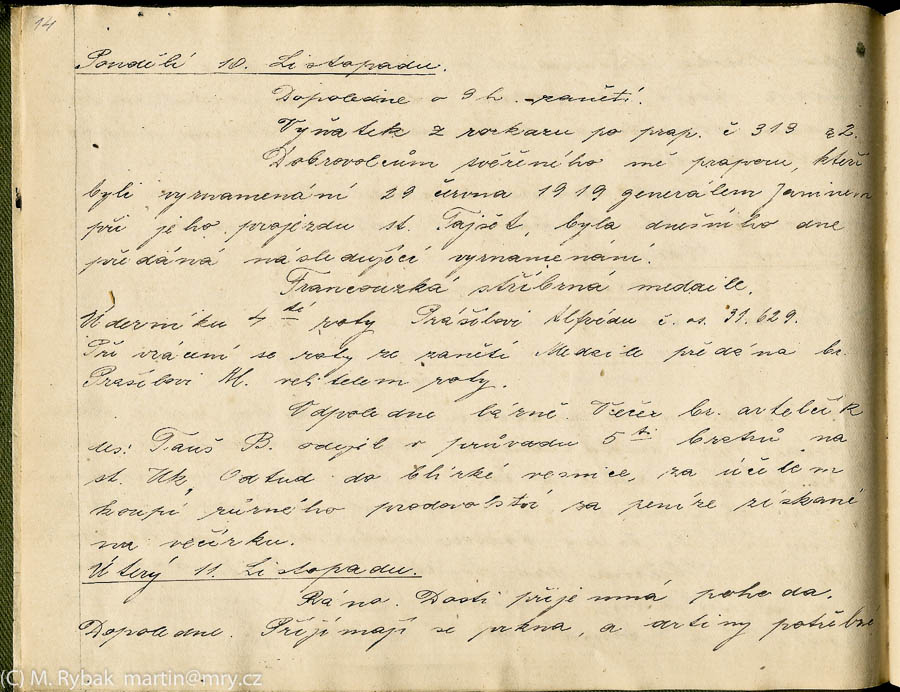 14
Pondělí 10. Listopadu.
Dopoledne o 9 h. zanětí.
Vyňatek z rozkazu po prap. č 319 z 2.
Dobrovolcům svěřeného mě praporu, kteří
byli vyznamenání 29 června 1919 generálem Janinem
při jeho projezdu st. Tajšet, byla dnešního dne
předáná následující vyznamenání.
Francouzká stříbrná medaile.
Úderníku 4 tí roty Prášilovi Alfrédu č. os. 31.629.
Při vrácení se roty ze zanětí Medaile předána br.
Prašilovi A. velitelem roty.
Odpoledne lázně. Večer br. artelčik
Us: Tauš B. odejel v průvodu 5 ti bratrů na
st. Uk, Odtud do blízké vesnice, za účelem
koupí různého prodovolství za peníze získané
na večírku.
Úterý 11. Listopadu.
Ráno. Dosti příjemná pohoda.
Dopoledne. Přijímají se prkna, a drtiny potřebné
(C) M. Rybak martin@mry.cz